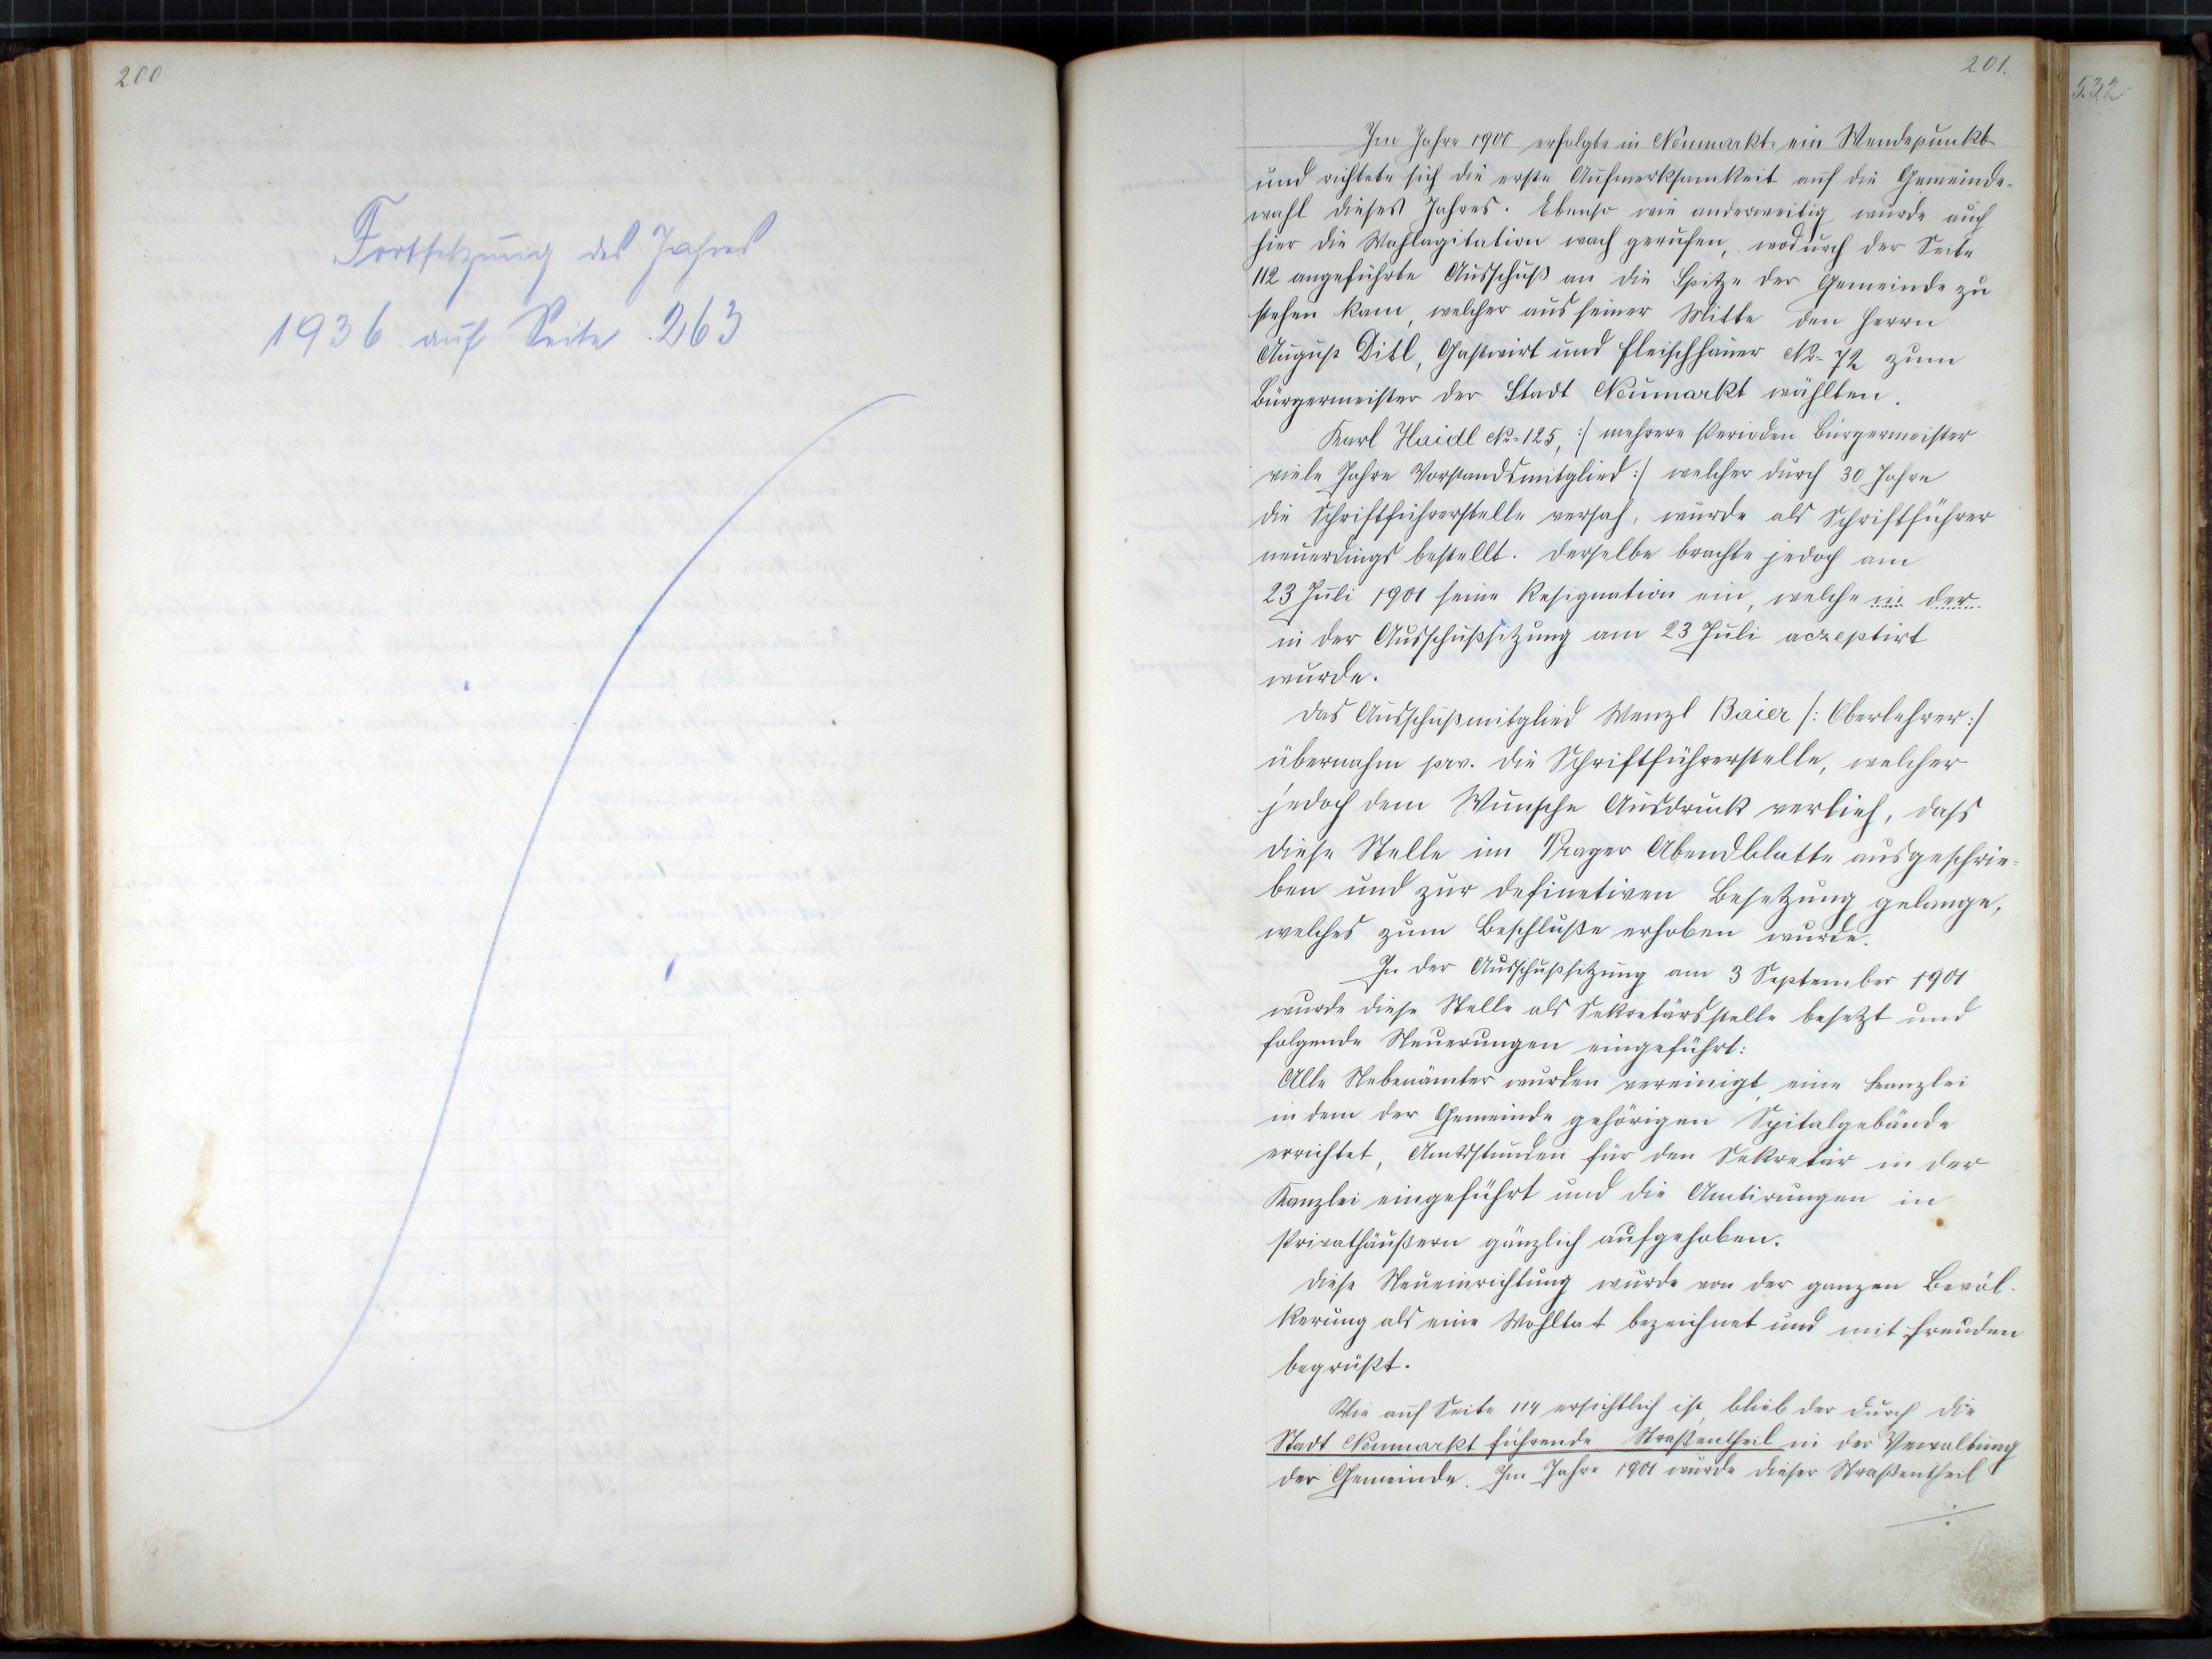 200
Fortsetzung des Jahres
1936 auf Seite 263
201.
532
Im Jahre 1900 erfolgte in Neumarkt ein Wendepunkt
und richtete sich die erste Aufmerksamkeit auf die Gemeinde-
wahl dieses Jahres. Ebenso wie anderweitig wurde auch
hier die Wahlagitation wach gerufen, wodurch der Seite
112 angeführte Ausschuß an die Spitze der Gemeinde zu
stehen kam, welcher aus seiner Mitte den Herrn
August Ditl, Gastwirt und Fleischhauer No- 72 zum
Bürgermeister der Stadt Neumarkt wählten.
Karl Haidl No- 125, :/ mehrere Perioden Bürgermeister
viele Jahre Vorstandsmitglied :/ welcher durch 30 Jahre
die Schriftführerstelle versah, wurde als Schriftführer
neuerdings bestellt. Derselbe brachte jedoch am
23 Juli 1901 seine Resignation ein, welche in der
in der Ausschußsitzung am 23 Juli aczeptirt
wurde.
Das Ausschußmitglied Wenzl Baier /: Oberlehrer :/
übernahm prv. die Schriftführerstelle, welcher
jedoch dem Wunsche Ausdruck verlieh, dass
diese Stelle im Prager Abendblatte ausgeschrie-
ben und zur definetiven Besetzung gelange,
welches zum Beschluße erhoben wurde.
In der Ausschußsitzung am 3 September 1901
wurde diese Stelle als Sekretärsstelle besetzt und
folgende Neuerungen eingeführt:
Alle Nebenämter wurden vereinigt, eine Kanzlei
in dem der Gemeinde gehörigen Spitalgebäude
errichtet, Amtsstunden für den Sekretär in der
Kanzlei eingeführt und die Amtirungen in
Privathäußern gänzlich aufgehoben.
Diese Neueinrichtung wurde von der ganzen Bevöl-
kerung als eine Wohltat bezeichnet und mit Freuden
begrüßt.
Wie auf Seite 114 ersichtlich ist, blieb der durch die
Stadt Neumarkt führende Straßentheil in der Verwaltung
der Gemeinde. Im Jahre 1901 wurde dieser Straßentheil